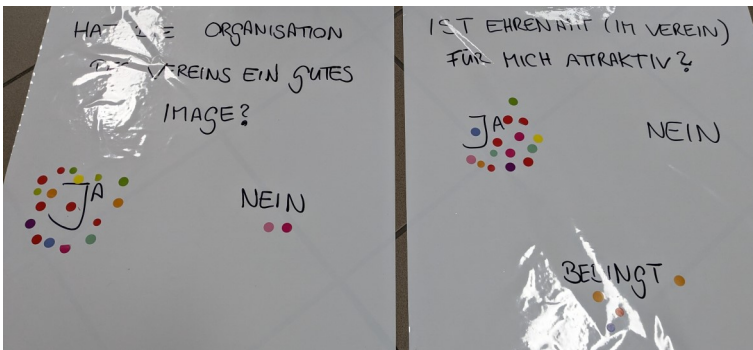 HAT DIE ORGANISATION
DES VEREINS EIN GUTES
IMAGE?
JA
NEIN
IST EHRENAMT (IM VEREIN)
FÜR MICH ATTRAKTIV?
JA
NEIN
BEDINGT